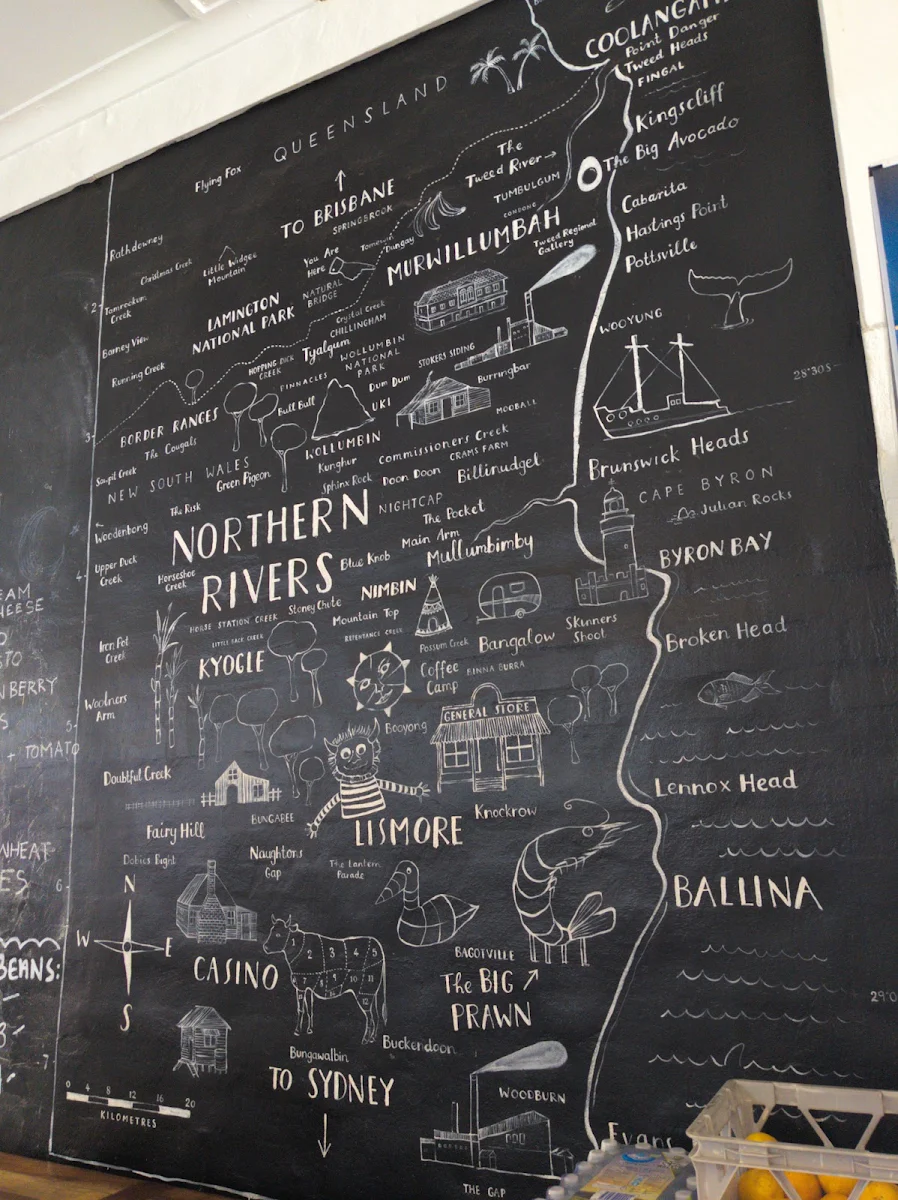 COOLANGA
Point Danger
Tweed Heads
FINGAL
QUEENSLAND
Kingscliff
The Big Avocado
The
Tweed River→
Flying Fox
TO BRISBANE
SPRINGBROOK
TUMBULGUM
CONDONG
Cabarita
Hastings Point
Pottsville
Rathdowney
Christmas Creek
Little Widgee
Mountain
You Are
Here
Tomewin
Dungay
MURWILLUMBAH
Tweed Regional
Gallery
NATURAL
BRIDGE
2
Tamrookum
Creek
LAMINGTON
NATIONAL PARK
Crystal Creek
CHILLINGHAM
Barney View
Running Creek
HOPPING DICK
CREEK
Tyalgum
WOLLUMBIN
NATIONAL
PARK
STOKERS SIDING
WOOYUNG
28°30S
PINNACLES
Dum Dum
Burringbar
Bull Bull
UKI
MOOBALL
3
BORDER RANGES
The Cougals
WOLLUMBIN
Commissioners Creek
CRAMS FARM
Brunswick Heads
NEW SOUTH WALES
Green Pigeon
Kunghur
Sphinx Rock
Doon Doon
Billinudgel
CAPE BYRON
Julian Rocks
The Risk
NIGHTCAP
The Pocket
Woodenbong
NORTHERN
RIVERS
Main Arm
Mullumbimby
BYRON BAY
4
Upper Duck
Creek
Horseshoe
Creek
Blue Knob
NIMBIN
HORSE STATION CREEK
Stoney Chute
Mountain Top
LITTLE BACK CREEK
REPENTANCE CREEK
Possum Creek
Bangalow
Skinners
Shoot
Broken Head
Iron Pot
Creek
KYOGLE
Coffee
Camp
BINNA BURRA
Woolners
Arm
5
GENERAL STORE
Booyong
Doubtful Creek
Lennox Head
BUNGABEE
Knockrow
Fairy Hill
LISMORE
Dobies Bight
Naughtons
Gap
The Lantern
Parade
6
BALLINA
N
W
E
S
1
2
3
4
5
CASINO
BAGOTVILLE
The BIG
PRAWN
29°0
7
Buckendoon
Bungawalbin
TO SYDNEY
WOODBURN
0 4 8 12 16 20
KILOMETRES
Evans
THE GAP
EAM
HEESE
STO
NBERRY
S
+ TOMATO
WHEAT
ES
BEANS: